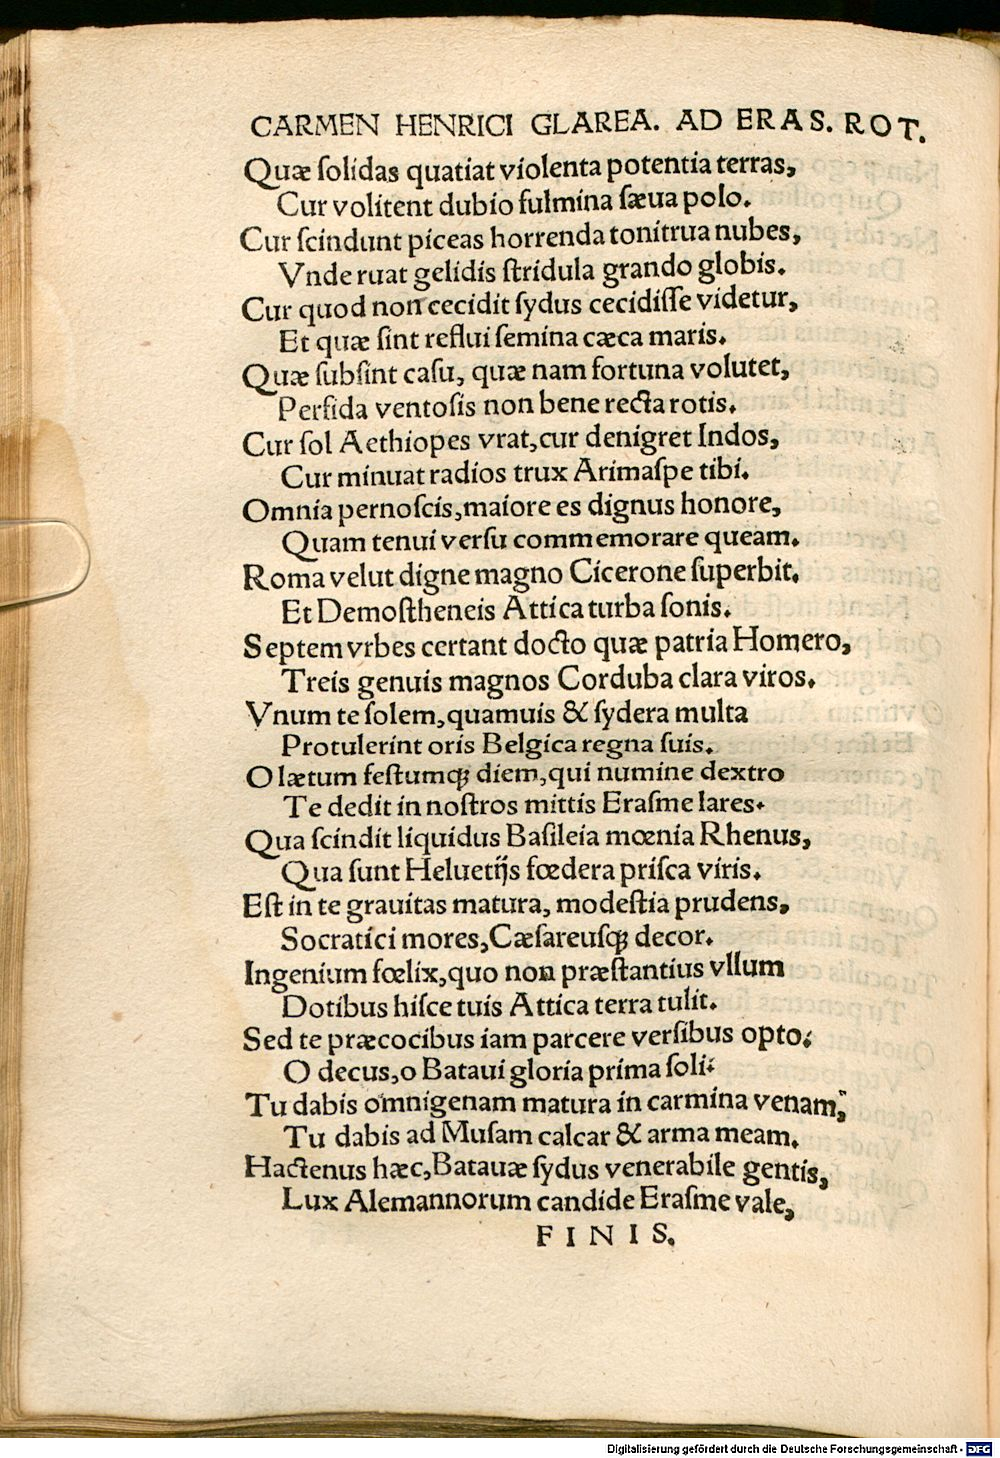 CARMEN HENRICI GLAREA. AD ERAS. ROT.
Quæ ſolidas quatiat violenta potentia terras,
Cur volitent dubio fulmina ſæua polo.
Cur ſcindunt piceas horrenda tonitrua nubes,
Vnde ruat gelidis ſtridula grando globis.
Cur quod non cecidit ſydus cecidiſſe videtur,
Et quæ ſint reflui ſemina cæca maris.
Quæ ſubſint caſu, quæ nam fortuna volutet,
Perfida ventoſis non bene recta rotis.
Cur ſol Aethiopes vrat, cur denigret Indos,
Cur minuat radios trux Arimaſpe tibi.
Omnia pernoſcis, maiore es dignus honore,
Quam tenui verſu commemorare queam.
Roma velut digne magno Cicerone ſuperbit,
Et Demoſtheneis Attica turba ſonis.
Septem vrbes certant docto quæ patria Homero,
Treis genuis magnos Corduba clara viros.
Vnum te ſolem, quamuis & ſydera multa
Protulerint oris Belgica regna ſuis.
O lætum feſtumqꝫ diem, qui numine dextro
Te dedit in noſtros mittis Eraſme lares.
Qua ſcindit liquidus Baſileia mœnia Rhenus,
Qua ſunt Heluetijs fœdera priſca viris.
Eſt in te grauitas matura, modeſtia prudens,
Socratici mores, Cæſareuſqꝫ decor.
Ingenium fœlix, quo non præſtantius vllum
Dotibus hiſce tuis Attica terra tulit.
Sed te præcocibus iam parcere verſibus opto:
O decus, o Bataui gloria prima ſoli:
Tu dabis omnigenam matura in carmina venam,
Tu dabis ad Muſam calcar & arma meam.
Hactenus hæc, Batauæ ſydus venerabile gentis,
Lux Alemannorum candide Eraſme vale,
FINIS.
Digitalisierung gefördert durch die Deutsche Forschungsgemeinschaft - DFG